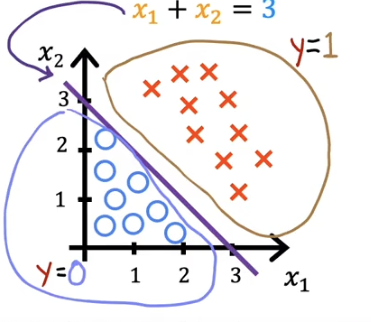 x₁ + x₂ = 3
x₂
y=1
3
2
1
y=0
1 2 3 x₁